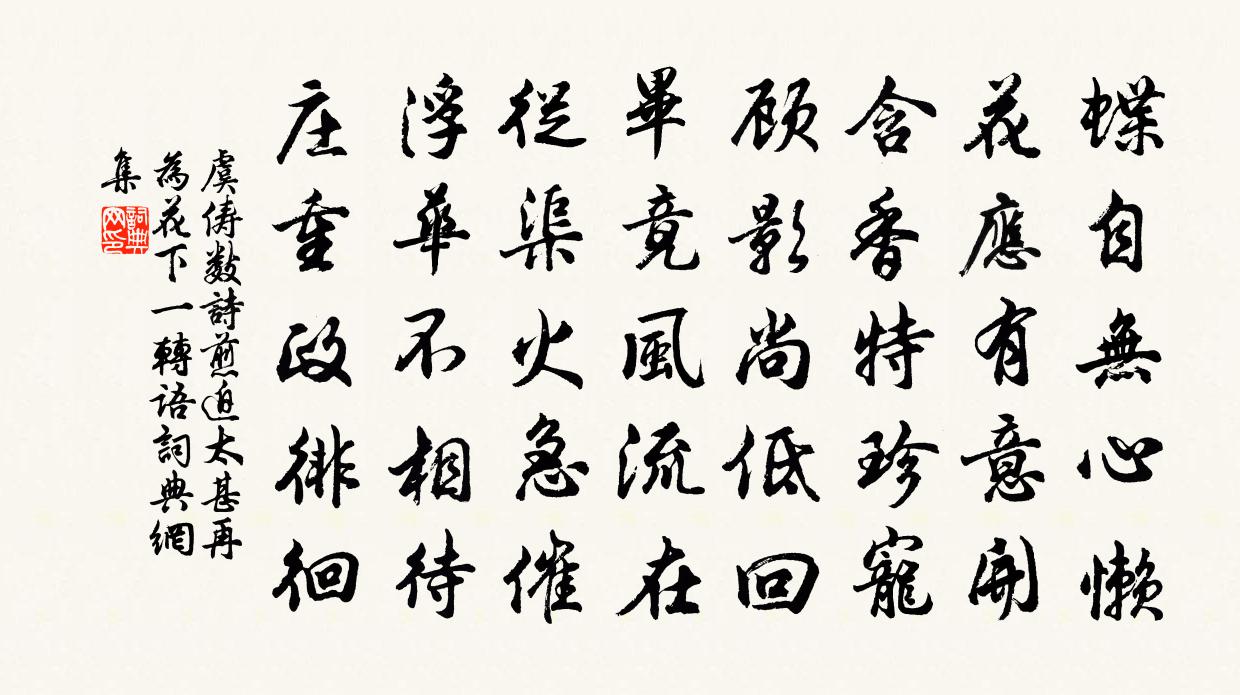 蝶自無心懶
花應有意開
含香特珍寵
顾影尚低回
畢竟風流在
從渠火急催
浮華不相待
庄重政徘徊
虞儔数詩煎迫太甚再
為花下一轉语詞典網
集
詞典
网印